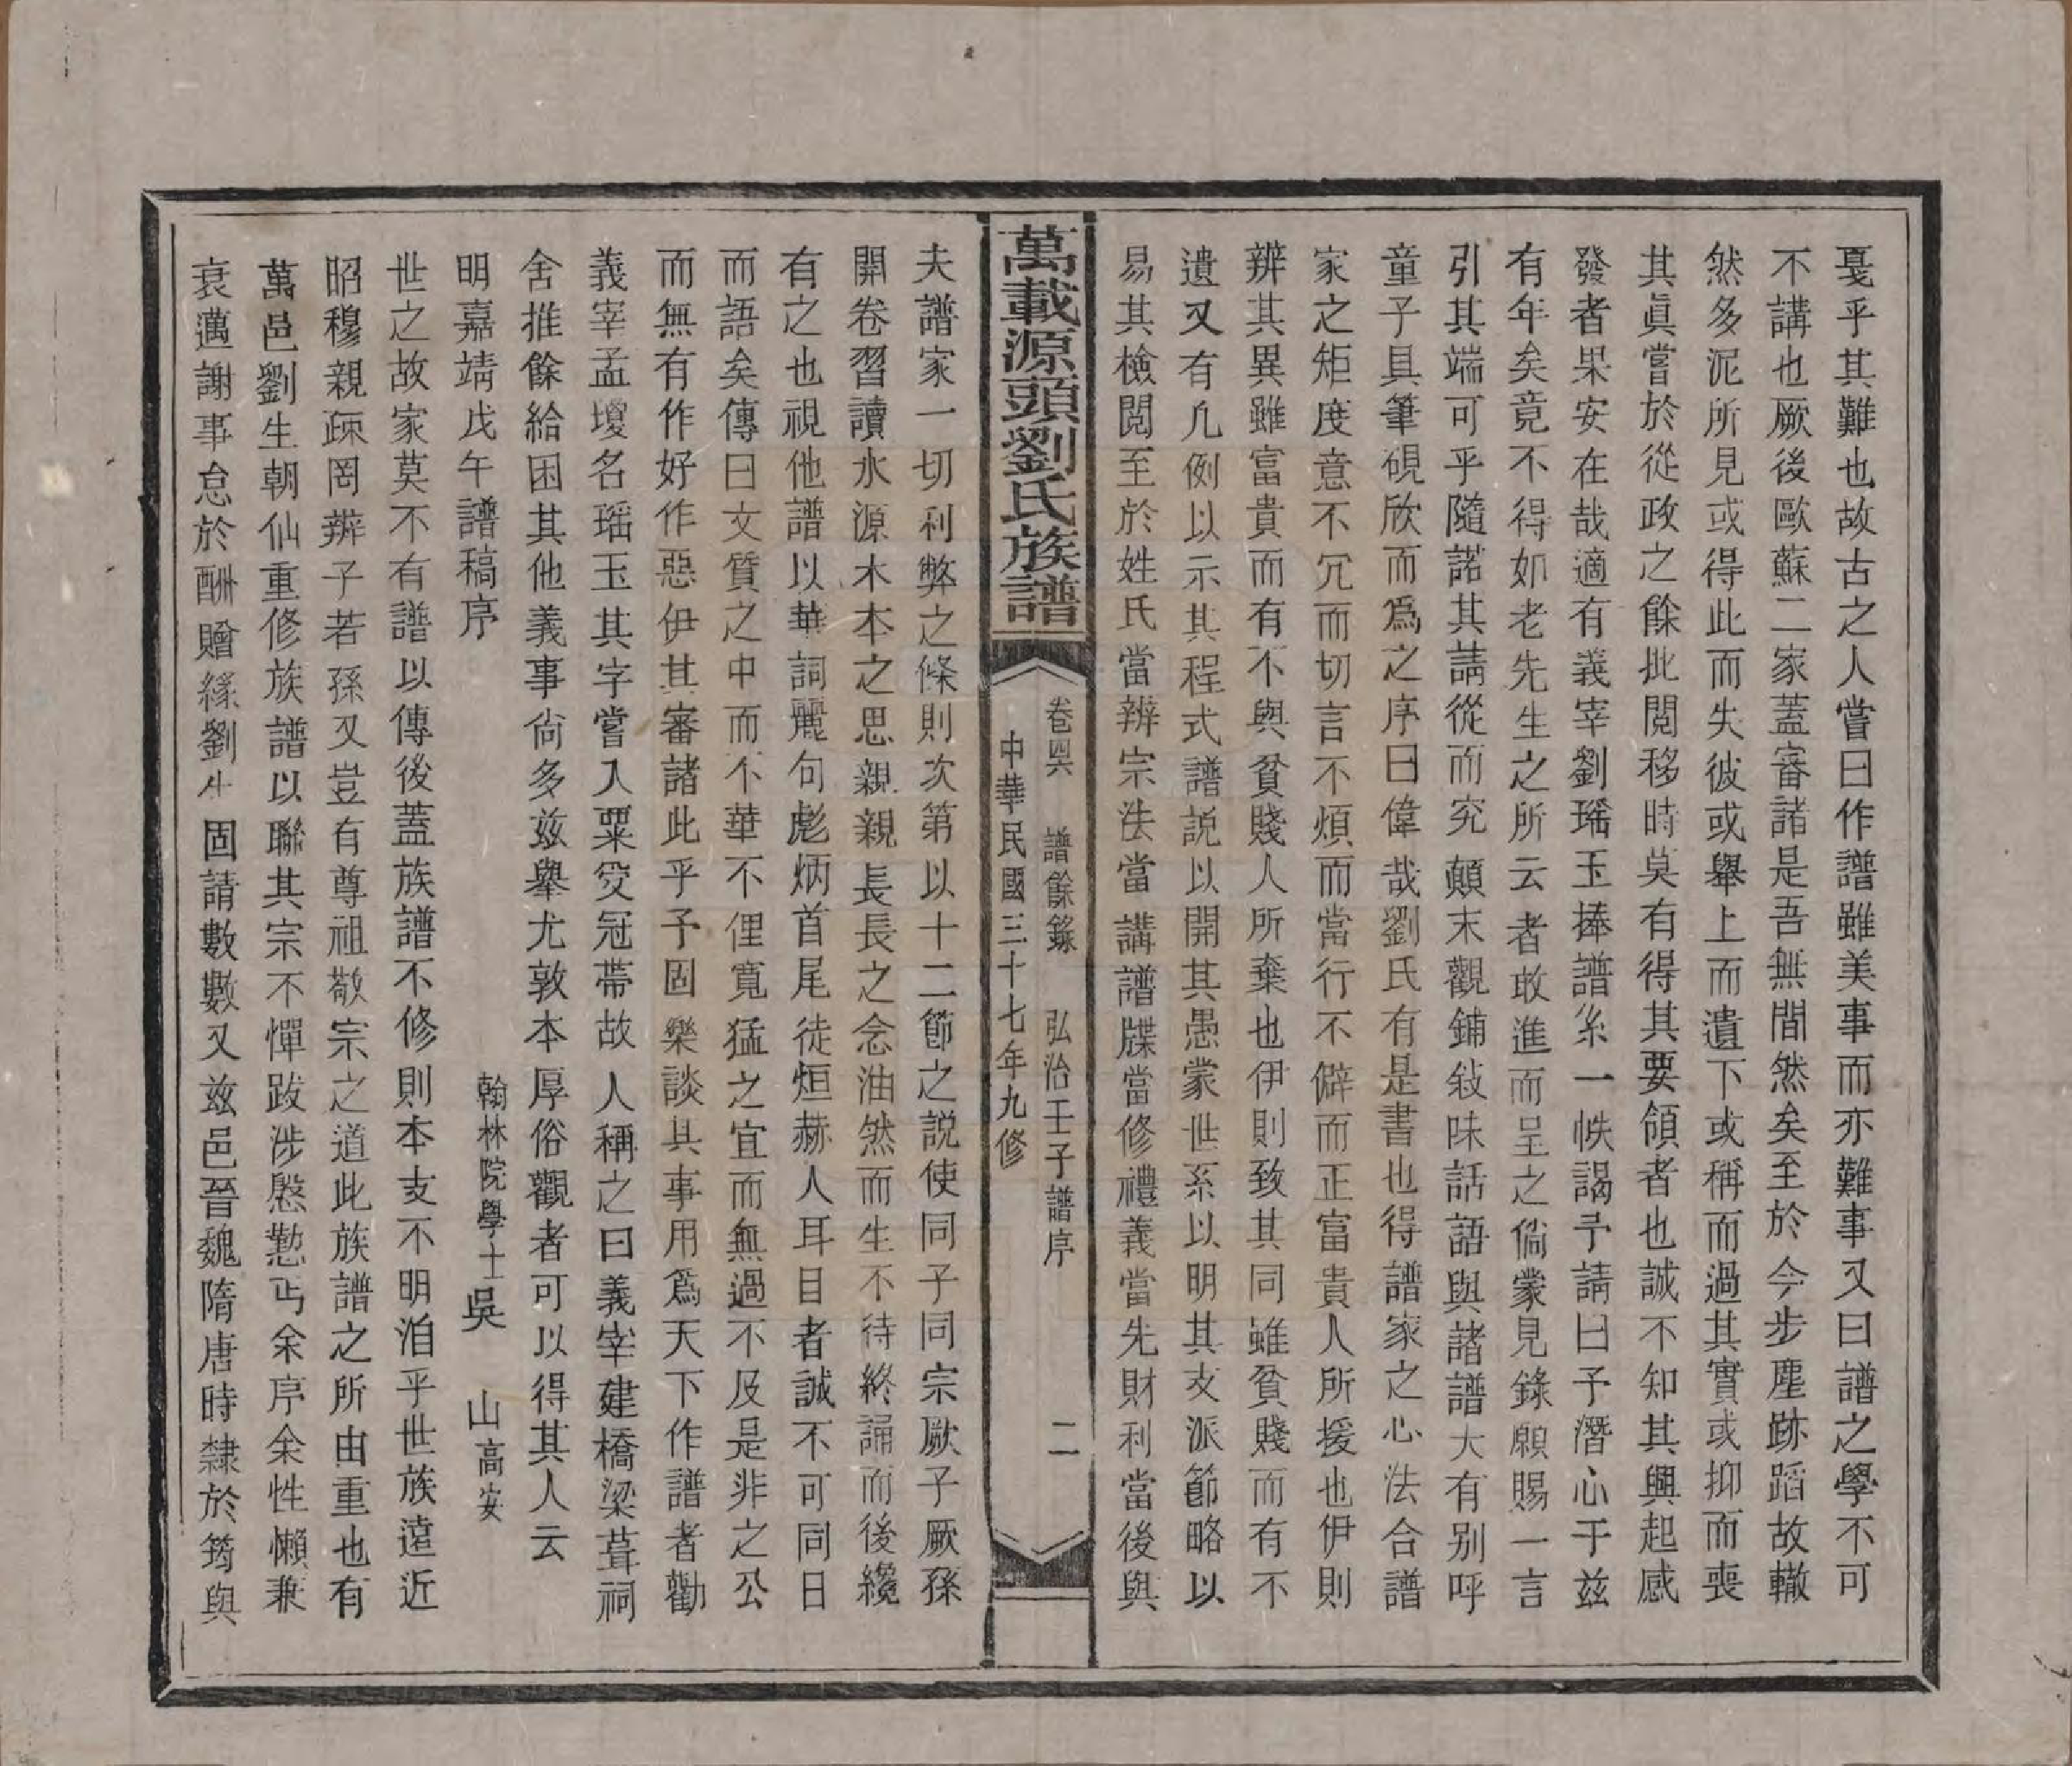 戞乎其難也故古之人嘗曰作譜雖美事而亦難事又曰譜之學不可
不講也厥後歐蘇二家蓋審諸是吾無間然矣至於今步塵跡蹈故轍
然多泥所見或得此而失彼或舉上而遺下或稱而過其實或抑而喪
其眞嘗於從政之餘批閲移時莫有得其要領者也誠不知其興起感
發者果安在哉適有義宰劉瑤玉捧譜系一帙謁予請曰予潛心于兹
有年矣竟不得如老先生之所云者敢進而呈之倘蒙見錄願賜一言
引其端可乎隨諾其請從而究顛末觀鋪敍味話語與諸譜大有别呼
童子具筆硯欣而爲之序曰偉哉劉氏有是書也得譜家之心法合譜
家之矩度意不冗而切言不煩而當行不僻而正富貴人所援也伊則
辨其異雖富貴而有不與貧賤人所棄也伊則致其同雖貧賤而有不
遺又有凡例以示其程式譜説以開其愚蒙世系以明其支派節略以
易其檢閲至於姓氏當辨宗法當講譜牒當修禮義當先財利當後與
萬載源頭劉氏族譜
卷四 譜餘錄 弘治壬子譜序 二
中華民國三十七年九修
夫譜家一切利弊之條則次第以十二節之説使同子同宗厥子厥孫
開卷習讀水源木本之思親親長長之念油然而生不待終誦而後纔
有之也視他譜以華詞麗句彪炳首尾徒烜赫人耳目者誠不可同日
而語矣傳曰文質之中而不華不俚寬猛之宜而無過不及是非之公
而無有作好作惡伊其審諸此乎予固樂談其事用爲天下作譜者勸
義宰孟瓊名瑤玉其字嘗入粟受冠帶故人稱之曰義宰建橋梁葺祠
舍推餘給困其他義事尙多兹舉尤敦本厚俗觀者可以得其人云
明嘉靖戊午譜稿序
翰林院學士吳 山高安
世之故家莫不有譜以傳後蓋族譜不修則本支不明洎乎世族遠近
昭穆親疎罔辨子若孫又豈有尊祖敬宗之道此族譜之所由重也有
萬邑劉生朝仙重修族譜以聯其宗不憚跋涉慇懃丐余序余性懶兼
衰邁謝事怠於酬贈緣劉生固請數數又兹邑晉魏隋唐時隸於筠與